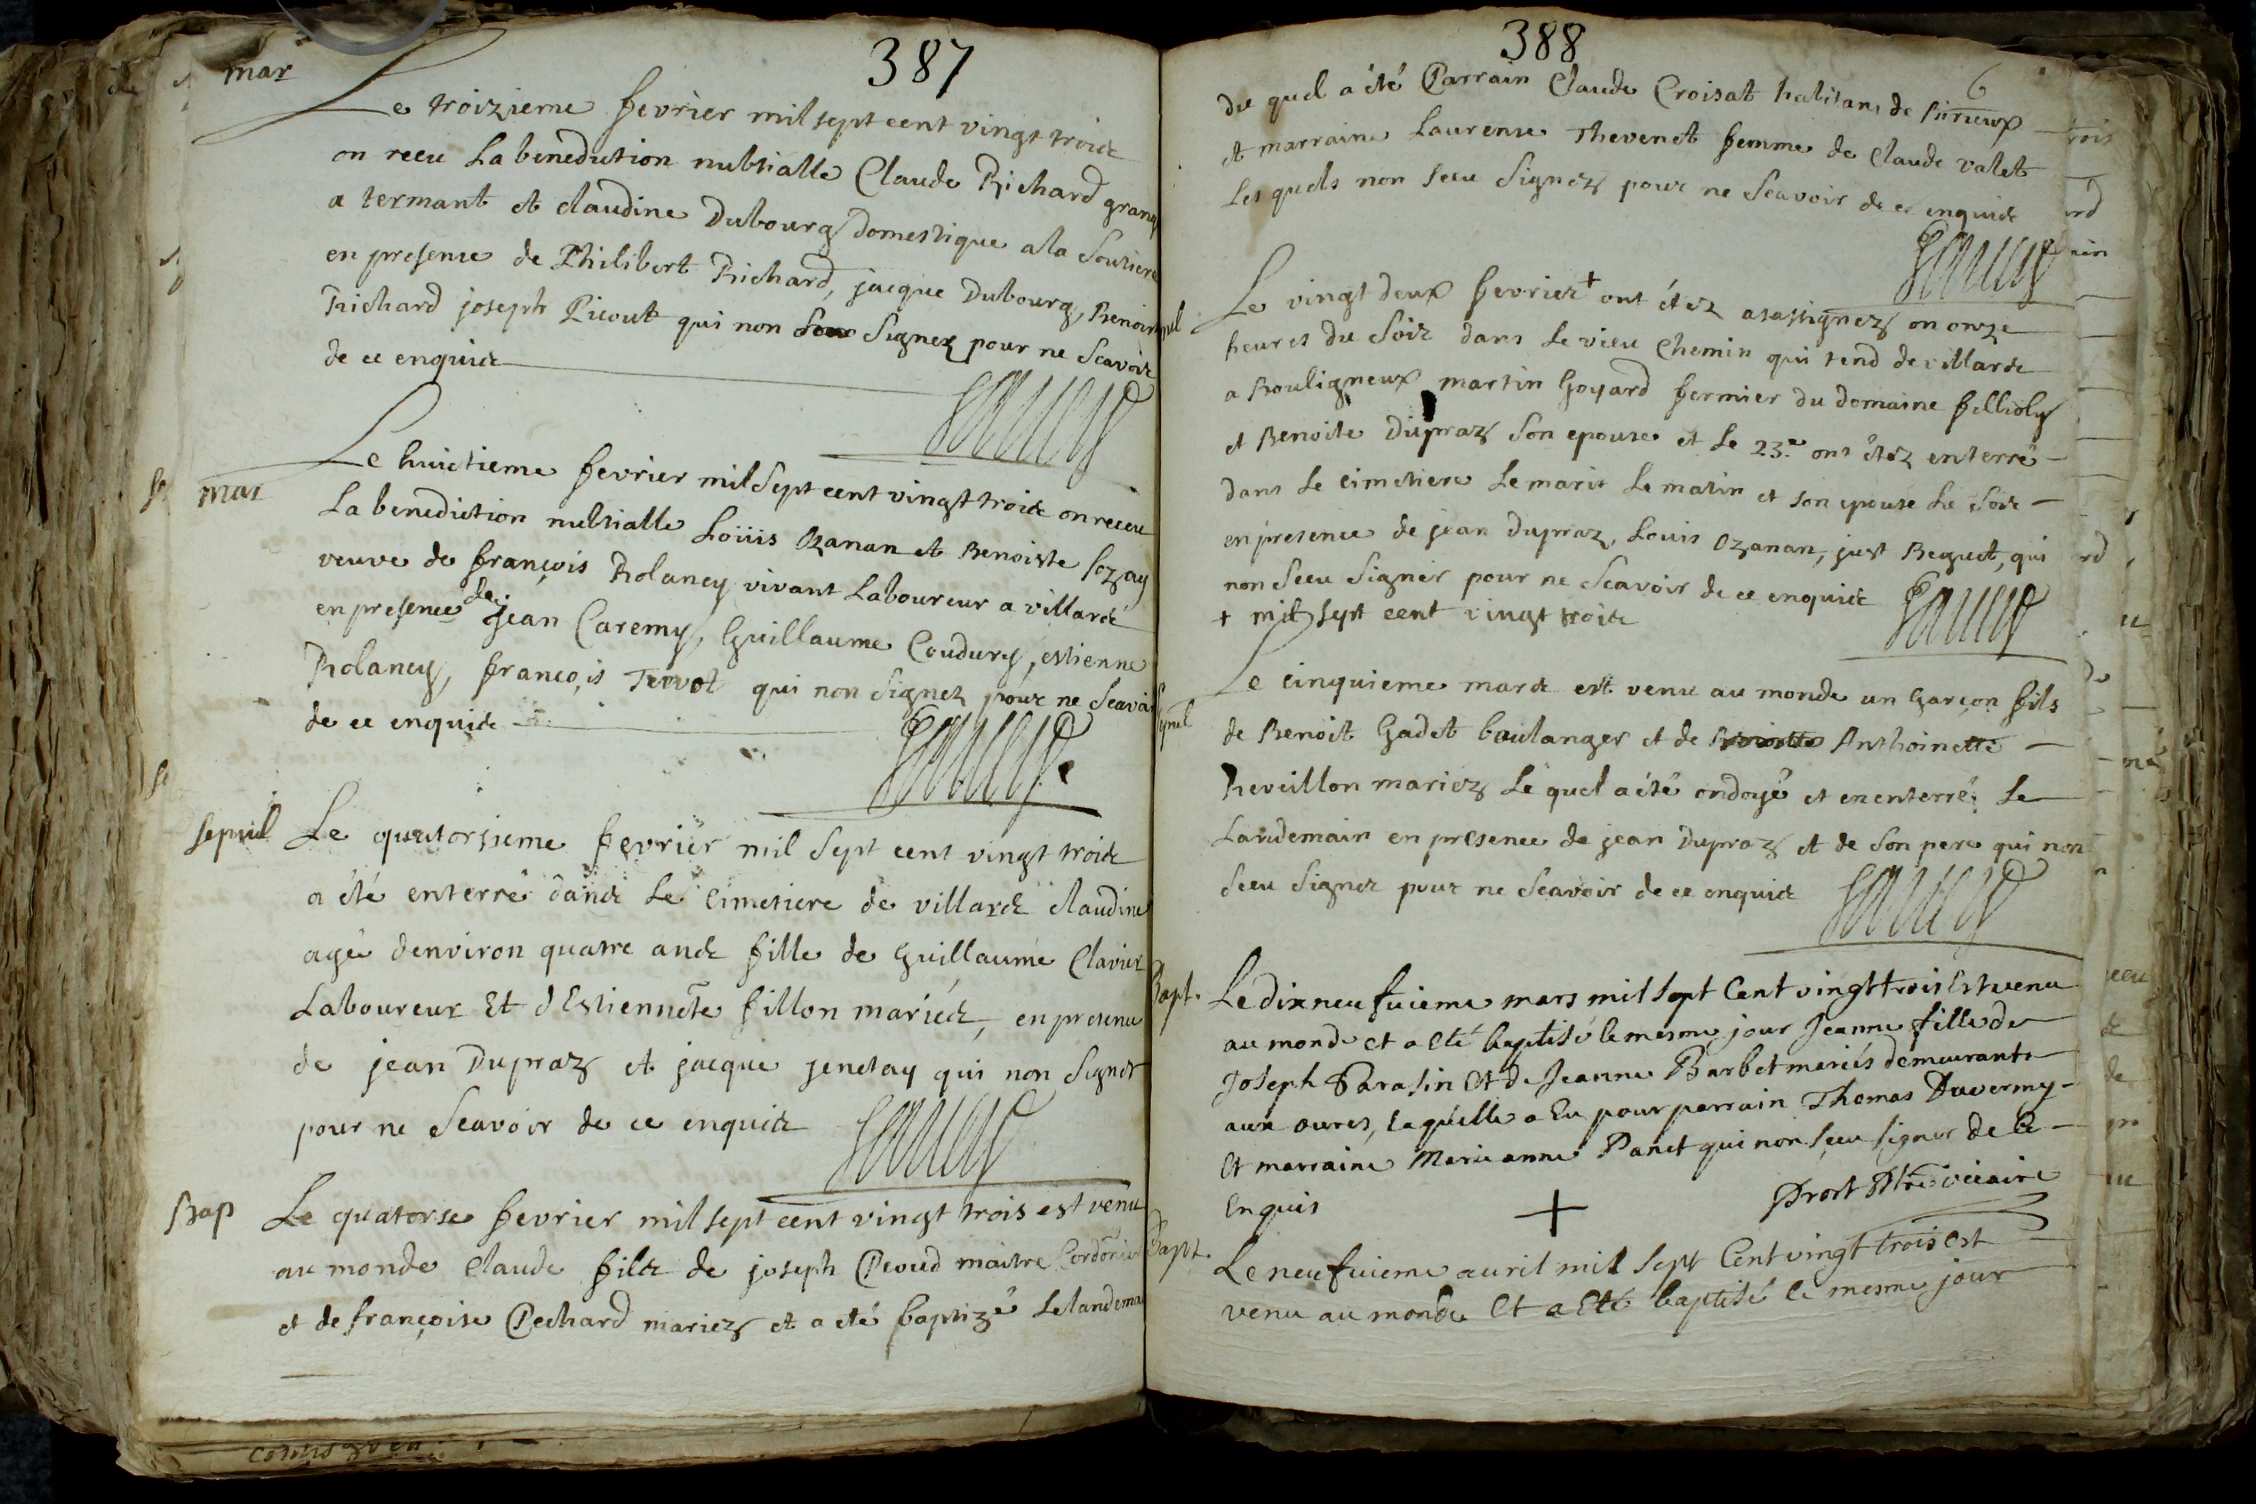 387
mar
Le troizieme fevrier mil sept cent vingt trois
on receu La benediction nubtialle Claude Richard grang
a termant et claudine Dubourg domestique a la
en presense de Philibert Richard, jacque Dubourg, Benoit
Richard joseph Picout qui non Signez pour ne Scavoir
de ce enquis
mar
Le huictieme fevrier mil Sept cent vingt trois on receu
La benediction nubtialle Loüis Ozanan et Benoiste
veuve de françois Rolancy vivant Laboureur a villards
en presence de jean Caremy, Guillaume Coudury, estienne
Rolancy, françois qui non Signez pour ne Scavoir
de ce enquis
sepvul
Le quatorsieme fevrier mil Sept cent vingt trois
a été enterré dans Le Cimetiere de villards claudine
agée denviron quatre ans fille de Guillaume Clavier
Laboureur Et dEstiennete fillon mariés, en presence
de jean Dupraz et jacque jenetay qui non Signer
pour ne Scavoir de ce enquis
Bap
Le quatorse fevrier mil sept cent vingt trois est venu
au monde Claude fils de joseph maitre Cordonier
et de françoise Pechard mariez et a eté baptizé Lelandema
388
6
du quel a été Parrain Claude Croisat habitans de Birieux
et marraine Laurense Thevenet femme de Claude valet
Les quels non Seeu Signez pour ne Scavoir de ce enquis
Le vingt deux fevrier + ont étez asassignez on onze
heures du Soir dans Le vieu Chemin qui tend de villards
a Bouligneux martin Goyard fermier du domaine
et Benoite Dupraz Son epouse et Le 23.e ont étez enterré
dans Le Cimetiere Le marit Le matin et son epouse Le Soir
en presence de jean Dupraz, Louis Ozanan, just Reguet, qui
non Seeu Signer pour ne Scavoir de ce enquis
+ mil sept cent vingt trois
Le cinquieme mars est venu au monde un Garcon fils
de Benoit Gadet boulanger et de Anthoinette
Reveillon mariez Le quel a été ondoyé et enenterré Le
Landemain en presence de jean Dupraz et de Son pere qui non
Seeu Signer pour ne Scavoir de ce enquis
Bapt.
Le dix neufuieme mars mil sept Cent vingt trois Est venu
au monde et a eté baptisé le mesme jour Jeanne fille de
Joseph Parasin et de Jeanne Barbet mariés demeurants
aux oures, laquelle a Eu pour parrain Thomas Duvermy
et marraine Marie anne Panet qui non sceu signer de Ce
Enquis
Prost Ptre viccaire
Bapt.
Le neufuieme auril mil sept Cent vingt trois Est
venu au monde et a eté baptisé le mesme jour